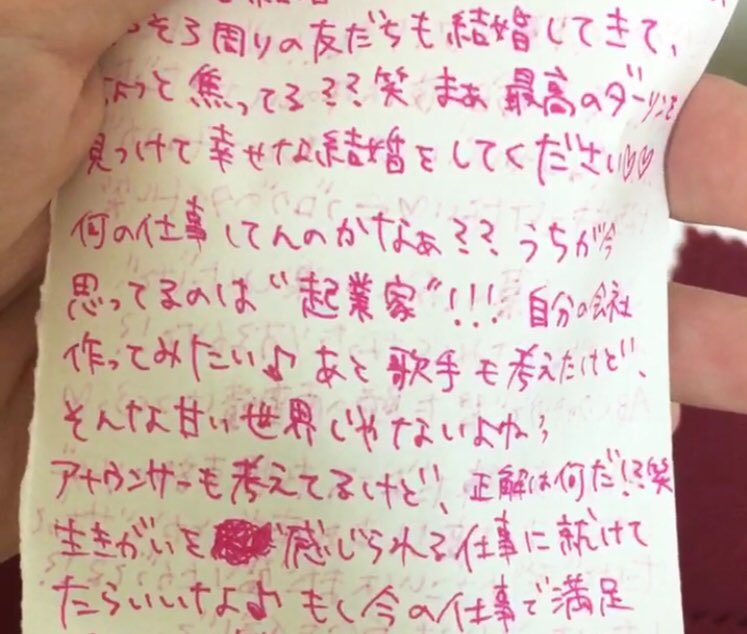 結婚
そろ周りの友だちも結婚してきて、
ょっと焦ってる??笑 まぁ 最高のダーリンを
見つけて幸せな結婚をしてください♡♡
何の仕事してんのかなぁ?? うちが今
思ってるのは“起業家”!!! 自分の会社
作ってみたい♪ あと 歌手も考えたけど、
そんな甘い世界じゃないよね?
アナウンサーも考えてるけど、正解は何だ!?笑
生きがいを 感じられる仕事に就けて
たらいいなよ♪ もし今の仕事で満足